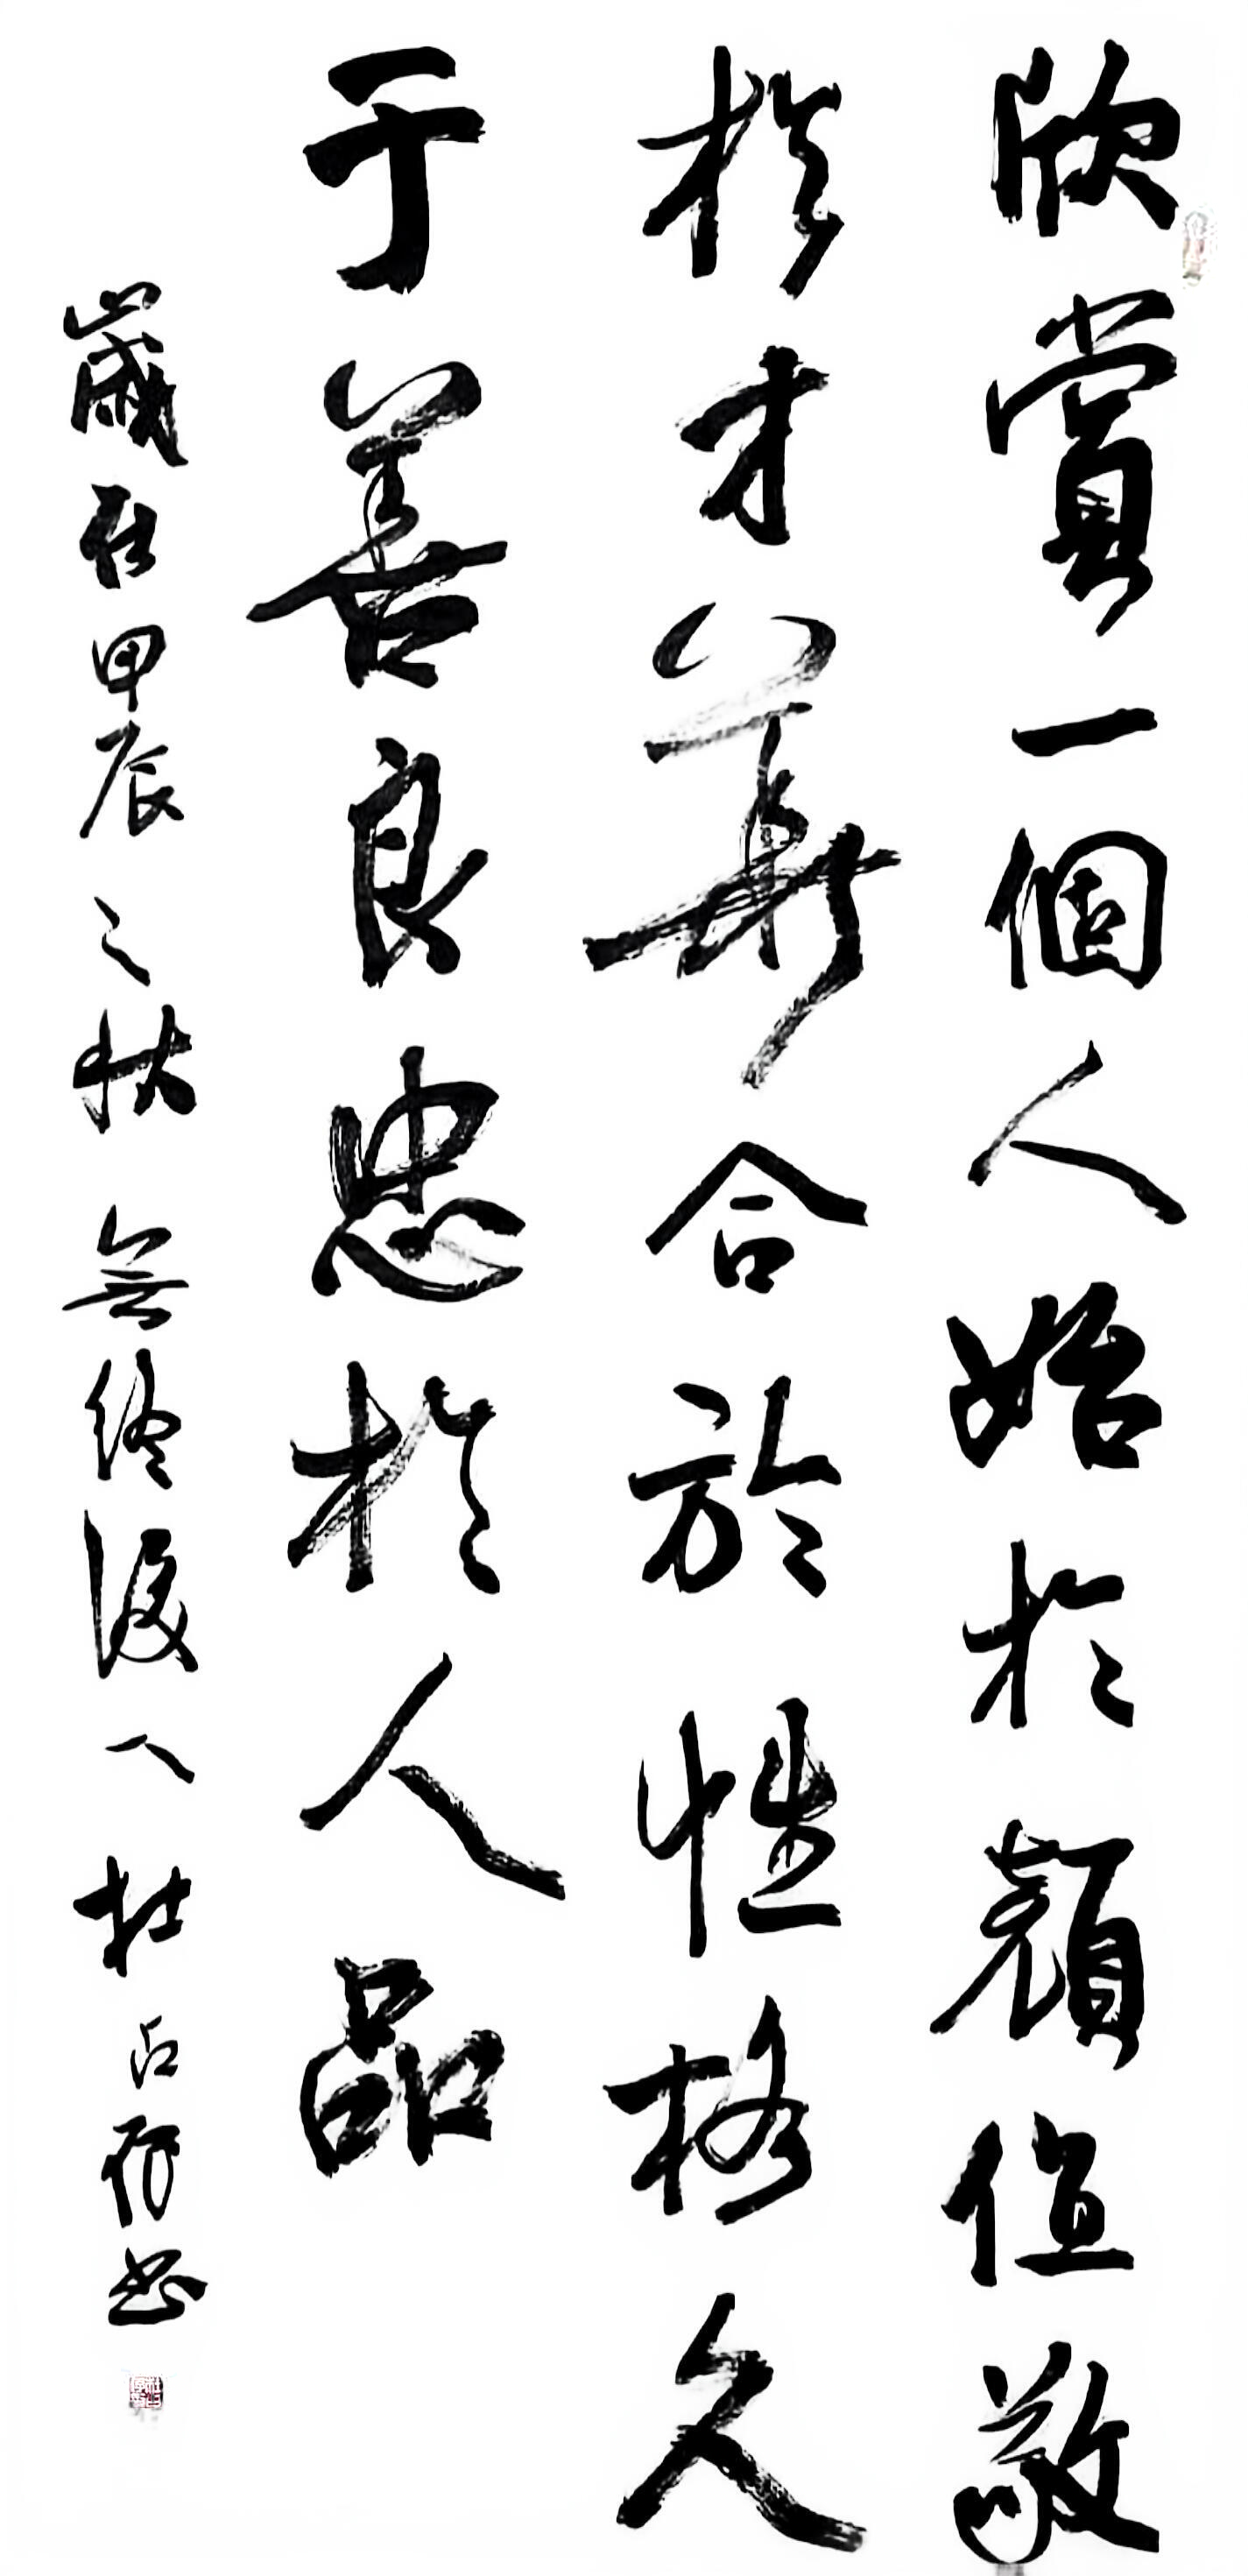 欣賞一個人始於顏值敬
於才華合於性格久
于善良忠於人品
歲在甲辰之秋無終後人杜占存书